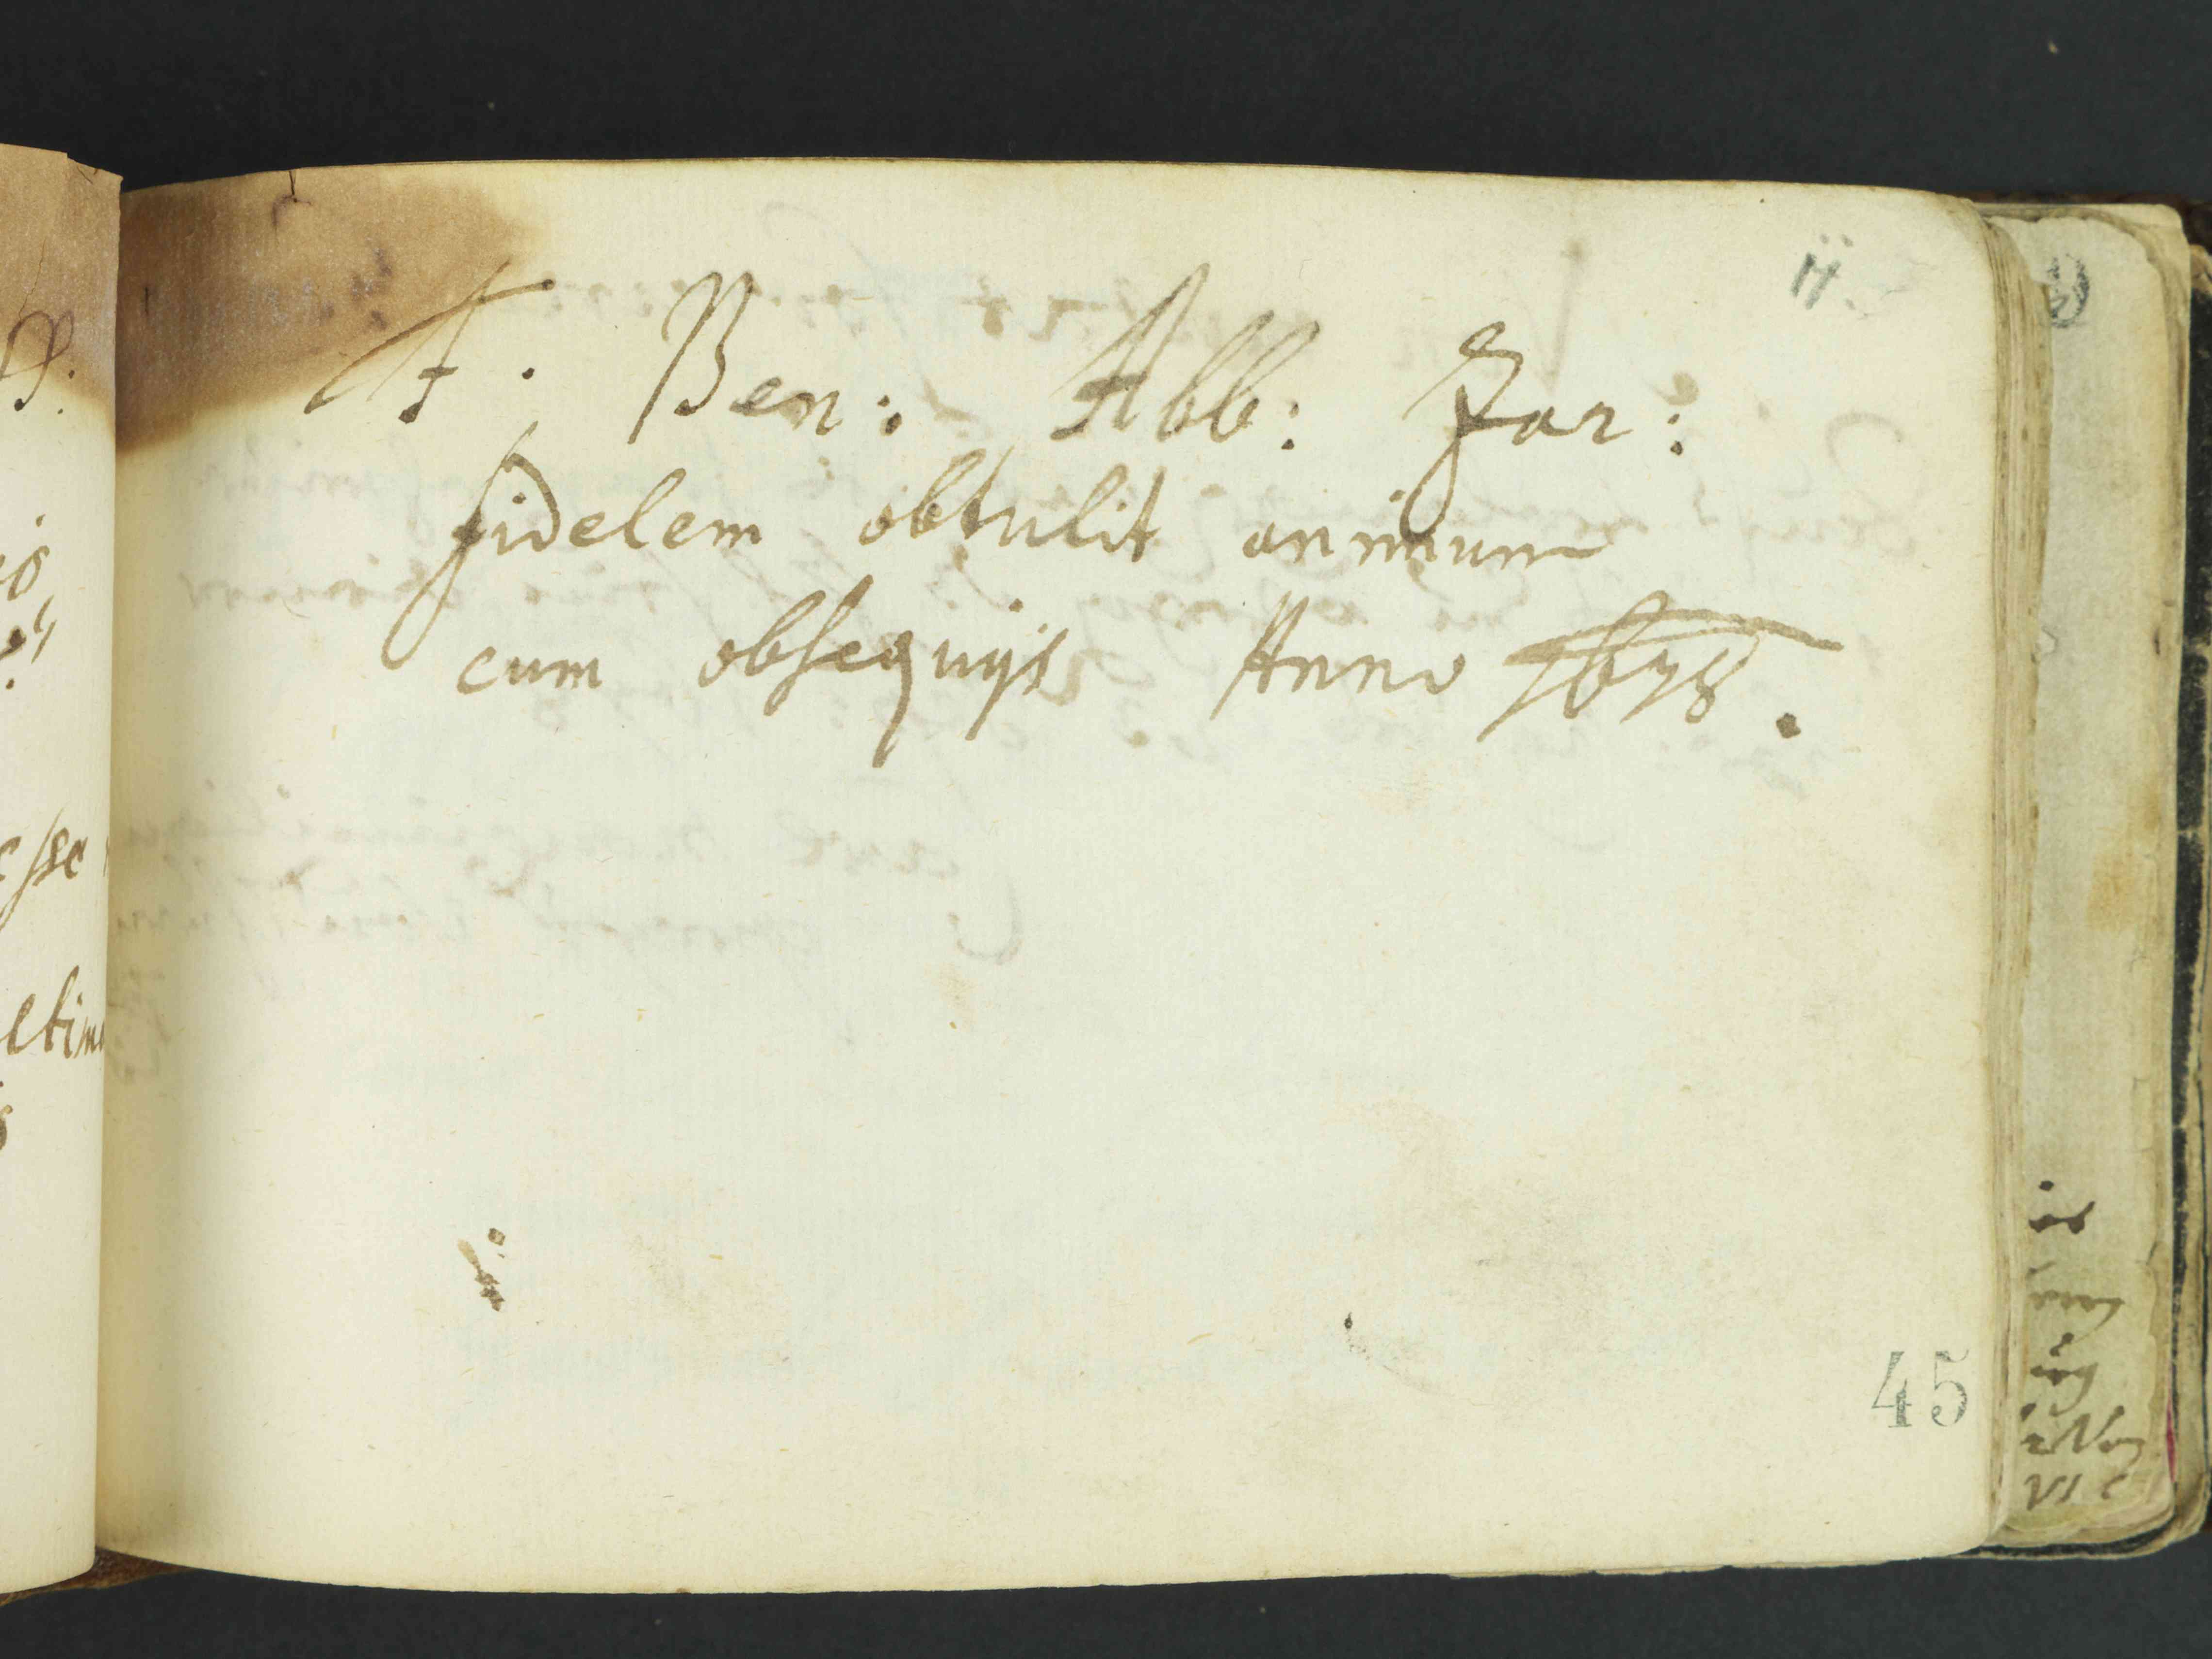 F. Ben: Abb: Zar:
fidelem obtulit animum
cum obsequijs Anno 1678.
45